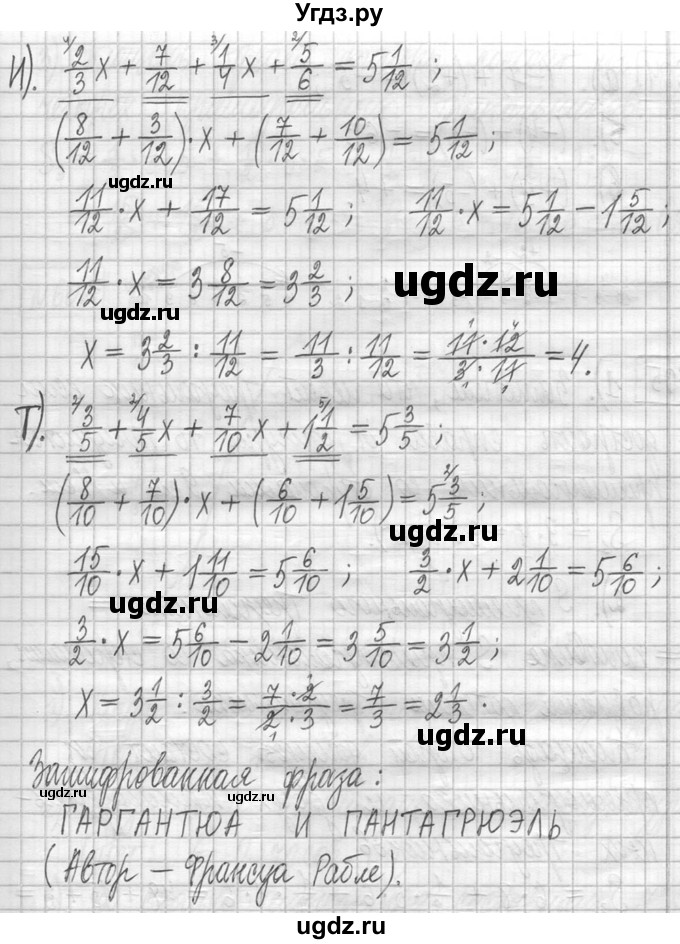 Угдз.ру
И). ⁴⁄2/3 x + 7/12 + ³⁄1/4 x + ²⁄5/6 = 5 1/12 ;
(8/12 + 3/12) · x + (7/12 + 10/12) = 5 1/12 ;
ugdz.ru
11/12 · x + 17/12 = 5 1/12 ; 11/12 · x = 5 1/12 − 1 5/12 ;
11/12 · x = 3 8/12 = 3 2/3 ; ugdz.ru
ugdz.ru
x = 3 2/3 : 11/12 = 11/3 : 11/12 = 11 · 12 / 3 · 11 = 4.
Т). ²⁄3/5 + ²⁄4/5 x + 7/10 x + 1 ⁵⁄1/2 = 5 3/5 ;
(8/10 + 7/10) · x + (6/10 + 1 5/10) = 5 ²⁄3/5 ;
ugdz.ru
15/10 · x + 1 11/10 = 5 6/10 ; 3/2 · x + 2 1/10 = 5 6/10 ;
ugdz.ru
3/2 · x = 5 6/10 − 2 1/10 = 3 5/10 = 3 1/2 ;
x = 3 1/2 : 3/2 = 7 · 2 / 2 · 3 = 7/3 = 2 1/3 .
ugdz.ru
Зашифрованная фраза :
ugdz.ru ugdz.ru
ГАРГАНТЮА И ПАНТАГРЮЭЛЬ
( Автор – Франсуа Рабле).
ugdz.ru